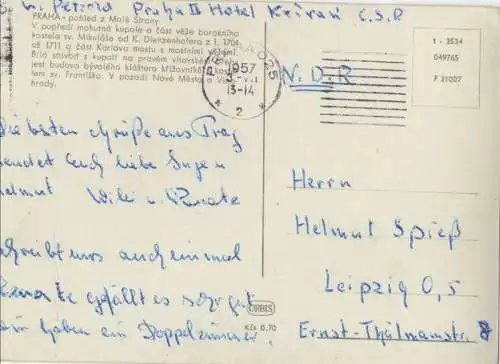 W. Petzold Praha II Hotel Květava C.S.R
PRAHA - pohled z Malé Strany.
V popředí mohutná kupole a část věže barokního
kostela sv. Mikuláše od K. Dienzenhofera z l. 1704
až 1711 a část Karlova mostu s mostními věžemi.
Bílá stavba s kupolí na pravém vltavském
jest budova bývalého kláštera křižovníků
lem sv. Františka. V pozadí Nové Město a Vyše-
hrady.
PRAHA 025
1957
13-14
* 2 *
1 - 3534
049765
F 31007
N.D.R
Liebsten Grüße aus Prag
sendet Euch liebe Inge u
Helmut Willi u Renate
Schreibt uns auch einmal
Renate gefällt es sehr gut
wir haben ein Doppelzimmer
ORBIS
Kčs 0,70
Herrn
Helmut Spieß
Leipzig O,5
Ernst-Thälmannstr. 8